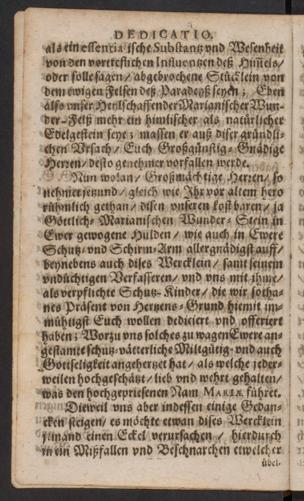 DEDICATIO.
als ein essentialische Substantz vnd Wesenheit
von den vortrefflichen Influentzen deß Him̃els/
oder solle sagen/ abgebrochene Stücklein von
dem ewigen Felsen deß Paradeyß seyen; Eben
also vnser Heylschaffender Marianischer Wun-
der-Felß mehr ein himlischer als natürlicher
Edelgestein seye; massen er auß diser gründli-
chen Vrsach/ Euch Großgünstig-Gnädige
Hertzen/ desto genehmer vorfallen werde.
Nun wolan/ Großmächtige Hertzen/ so
nehmet jetzund/ gleich wie Ihr vor altem hero
rühmlich gethan/ disen vnseren kostbaren/ ja
Göttlich-Marianischen Wunder-Stein in
Ewer gewogene Hulden/ wie auch in Ewere
Schutz- vnd Schirm-Arm allergnädigst auff/
beynebens auch dises Wercklein/ samt seinem
vndüchtigen Verfasseren/ vnd vns mit ihme/
als verpflichte Schutz-Kinder/ die wir sotha-
nes Präsent von Hertzens-Grund hiemit im-
mühtigst Euch wollen dediciert vnd offeriert
haben; Worzu vns solches zu wagen Ewere an-
gestamte schutz-vätterliche Miltgütig- vnd auch
Gottseligkeit angehertzet hat/ als welche jeder-
weilen hochgeschätzt/ lieb vnd wehrt gehalten/
was den hochgepriesenen Nam MARIÆ führet.
Dieweil vns aber indessen einige Gedan-
cken steigen/ es möchte etwan dises Wercklein
jemand einen Eckel verursachen/ hierdurch
in ein Mißfallen vnd Beschnarchen etwelcher
übel-